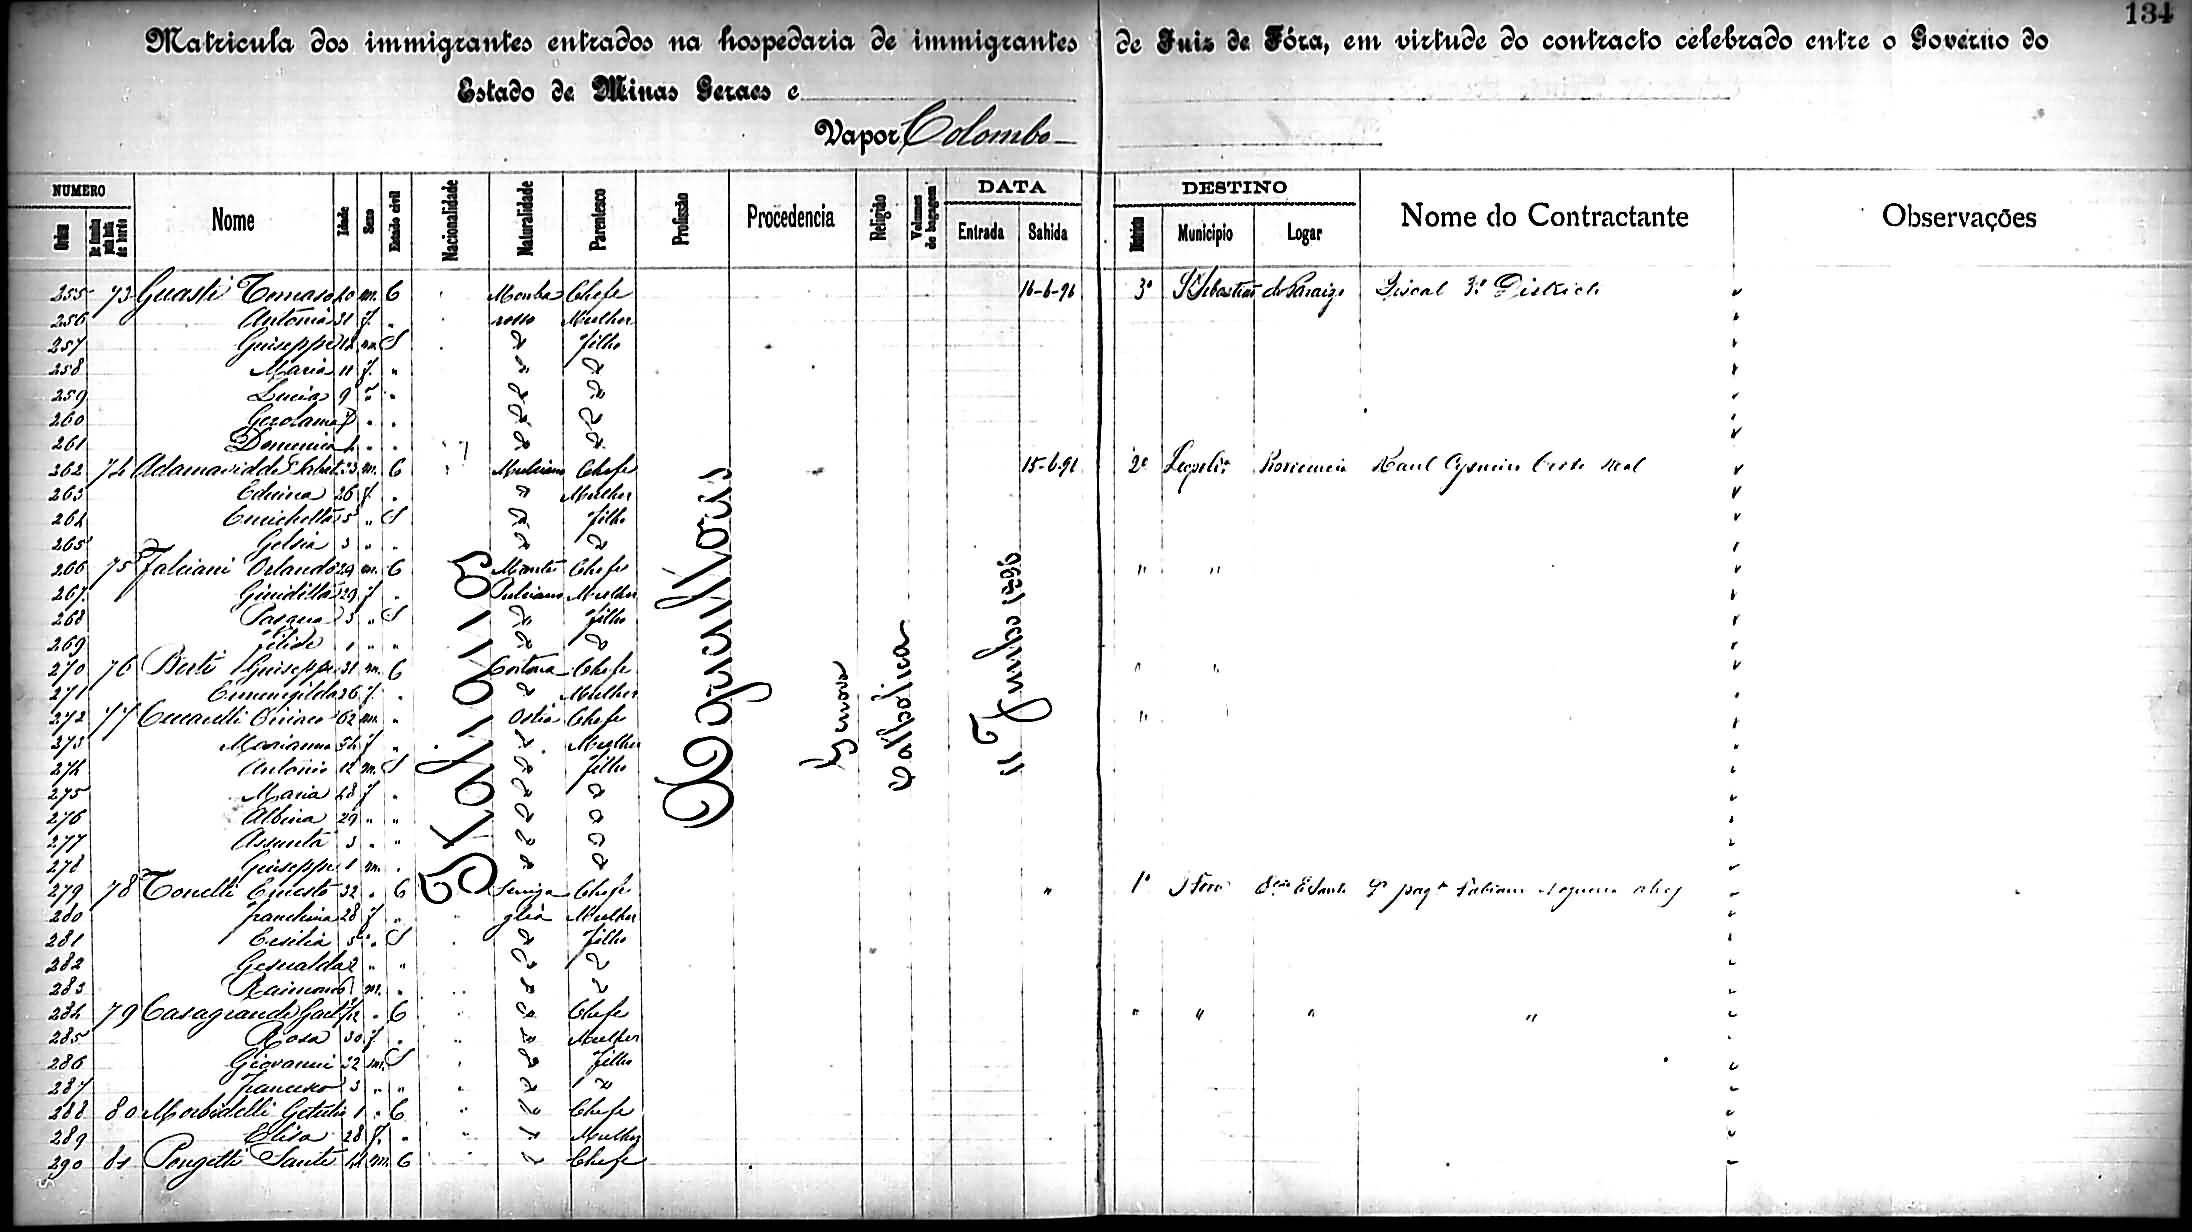 134
Matricula dos immigrantes entrados na hospedaria de immigrantes de Juiz de Fóra, em virtude do contracto celebrado entre o Governo do
Estado de Minas Geraes e
Vapor Colombo
NUMERO Nome Idade Sexo Estado civil Nacionalidade Naturalidade Parentesco Profissão Procedencia Religião Volumes de bagagem DATA DESTINO Nome do Contractante Observações
Ordem De familia pela lista de bordo Entrada Sahida Districto Municipio Logar
Italianos
Agricultores
Genova
Catholica
11 Junho 1896
255 73 Guasti Tomaso 40 m. C Chefe 16-6-96 3º S. Sebastião do Paraizo Fiscal 3º Districto
256 Antonia 31 f. " rosso Mulher
257 Guiseppe 12 m. S " filho
258 Maria 11 f. " " "
259 Lucia 9 " " " "
260 Gerolama 7 " " " "
261 Domenica 4 " " " "
262 74 23 m. C Chefe 15-6-96 2º Leopol.na Raul
263 26 f. " " Mulher
264 Enrichetta 5 " S " filho
265 Gelsia 3 " " " "
266 75 Falciani Orlando 29 m. C Monte Chefe " "
267 Giuditta 29 f " Pulciano Mulher
268 3 " S " filho
269 1 " " " "
270 76 Berti Guiseppe 31 m. C Cortona Chefe " "
271 Ermenegilda 26 f. " " Mulher
272 77 Ceccarelli 62 m. " Ostia Chefe "
273 Marianna 54 f " " Mulher
274 Antonio 12 m. S " filho
275 Maria 28 f " " "
276 Albina 29 " " " "
277 Assunta 3 " " " "
278 Guiseppe 1 m. " " "
279 78 Tonelli Ernesto 32 " C Seniga Chefe " 1º J Fora
280 28 f " glia Mulher
281 Cesilia 5 " S " filho
282 Gesualda 2 " " " "
283 Raimondo 1 m. " " "
284 79 Casagrande " C " Chefe " " " "
285 Rosa 30 f. " " Mulher
286 Giovanni 32 m. S " filho
287 Francesco 3 " " " "
288 80 Morbidelli " C " Chefe
289 Elisa 28 f. " " Mulher
290 81 Pongetti Sante 44 m. C " Chefe